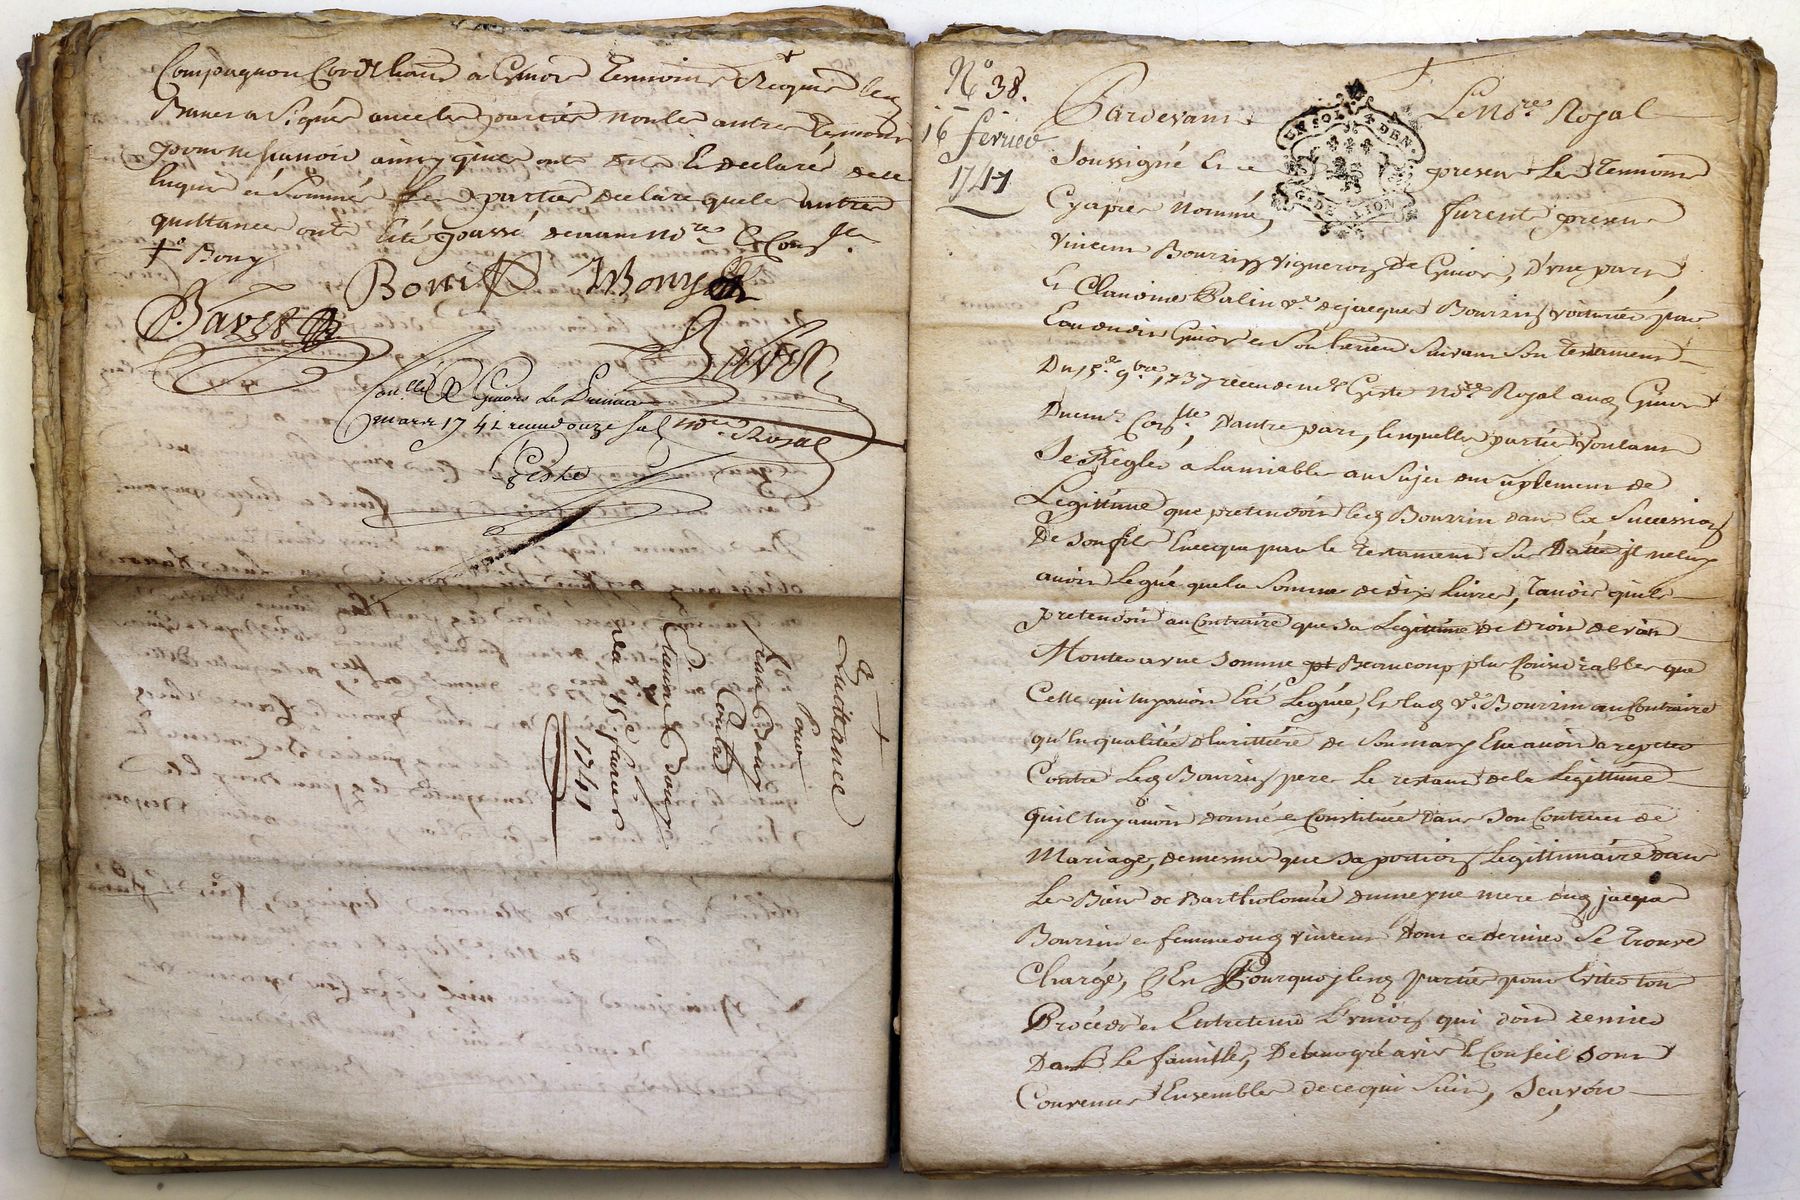 Compagnon Cordelians a Givors temoins Requis led
Baver a Signé avec les parties non les autres temoins
pour ne scavoir ainsy qu'ils ont dit et declaré de ce
enquis et Sommés parties declare que les autres
quittances ont eté passé devant no.re Conf.lle
Bony
Boni Bony
Baver Baver
Con.llé a Givors Le
mars 1741 receu douze sols no.re Royal
Geste
Quittance
Pour
Jean Bony
Contre
Claude Bony
Du 15e fevrier
1741
N.o 38.
16 fevrier
1741
Pardevant Le No.re Royal
UN SOL DEN. G. DE LION
Soussigné et en presence des temoins
Cy apres nommé, furent present
Vincent Bourrin Vigneron de Givors, d'une part,
Et Claudine Balin v.e de jacques Bourrin voiturier par
Eau dudit Givors et son heritiere suivant son testament
Du 15.e 9.bre 1737 receu de me Geste No.re Royal aud Givors
Duem.t Con.llé, D'autre part, lesquelles parties voulant
Se Regler a Lamiable au Sujet du suplement de
Legittime que pretendoit led Bourrin dans la Succession
De son fils En ce que par le testament sus Datté il ne luy
avoit Legué que la Somme de dix Livres, tandis qu'il
pretendoit au Contraire que sa Legittime de Droit devoit
Monter a une Somme Beaucoup plus Considerable que
Celle qui luy avoit Eté Leguée, Et lad v.e Bourrin au Contraire
qu'en qualitée d'heritiere de Son mary Elle avoit a repeter
Contre Led Bourrin pere Le restant de la Legittime
qu'il luy avoit donnée Constituée Dans Son Contract de
Mariage, de mesme que sa portion Legittimaire dans
Les Biens de Bartholomée mere dud jacques
Bourrin et femme dud vincent Dont ce dernier Se trouve
Chargé, C'Est Pourquoy lesd parties pour Eviter tout
Procès et Entretenir L'union qui doit regner
Dans Le famille, De leur gré avis Et Conseil Sont
Convenues Ensembles de ce qui Suit, Scavoir